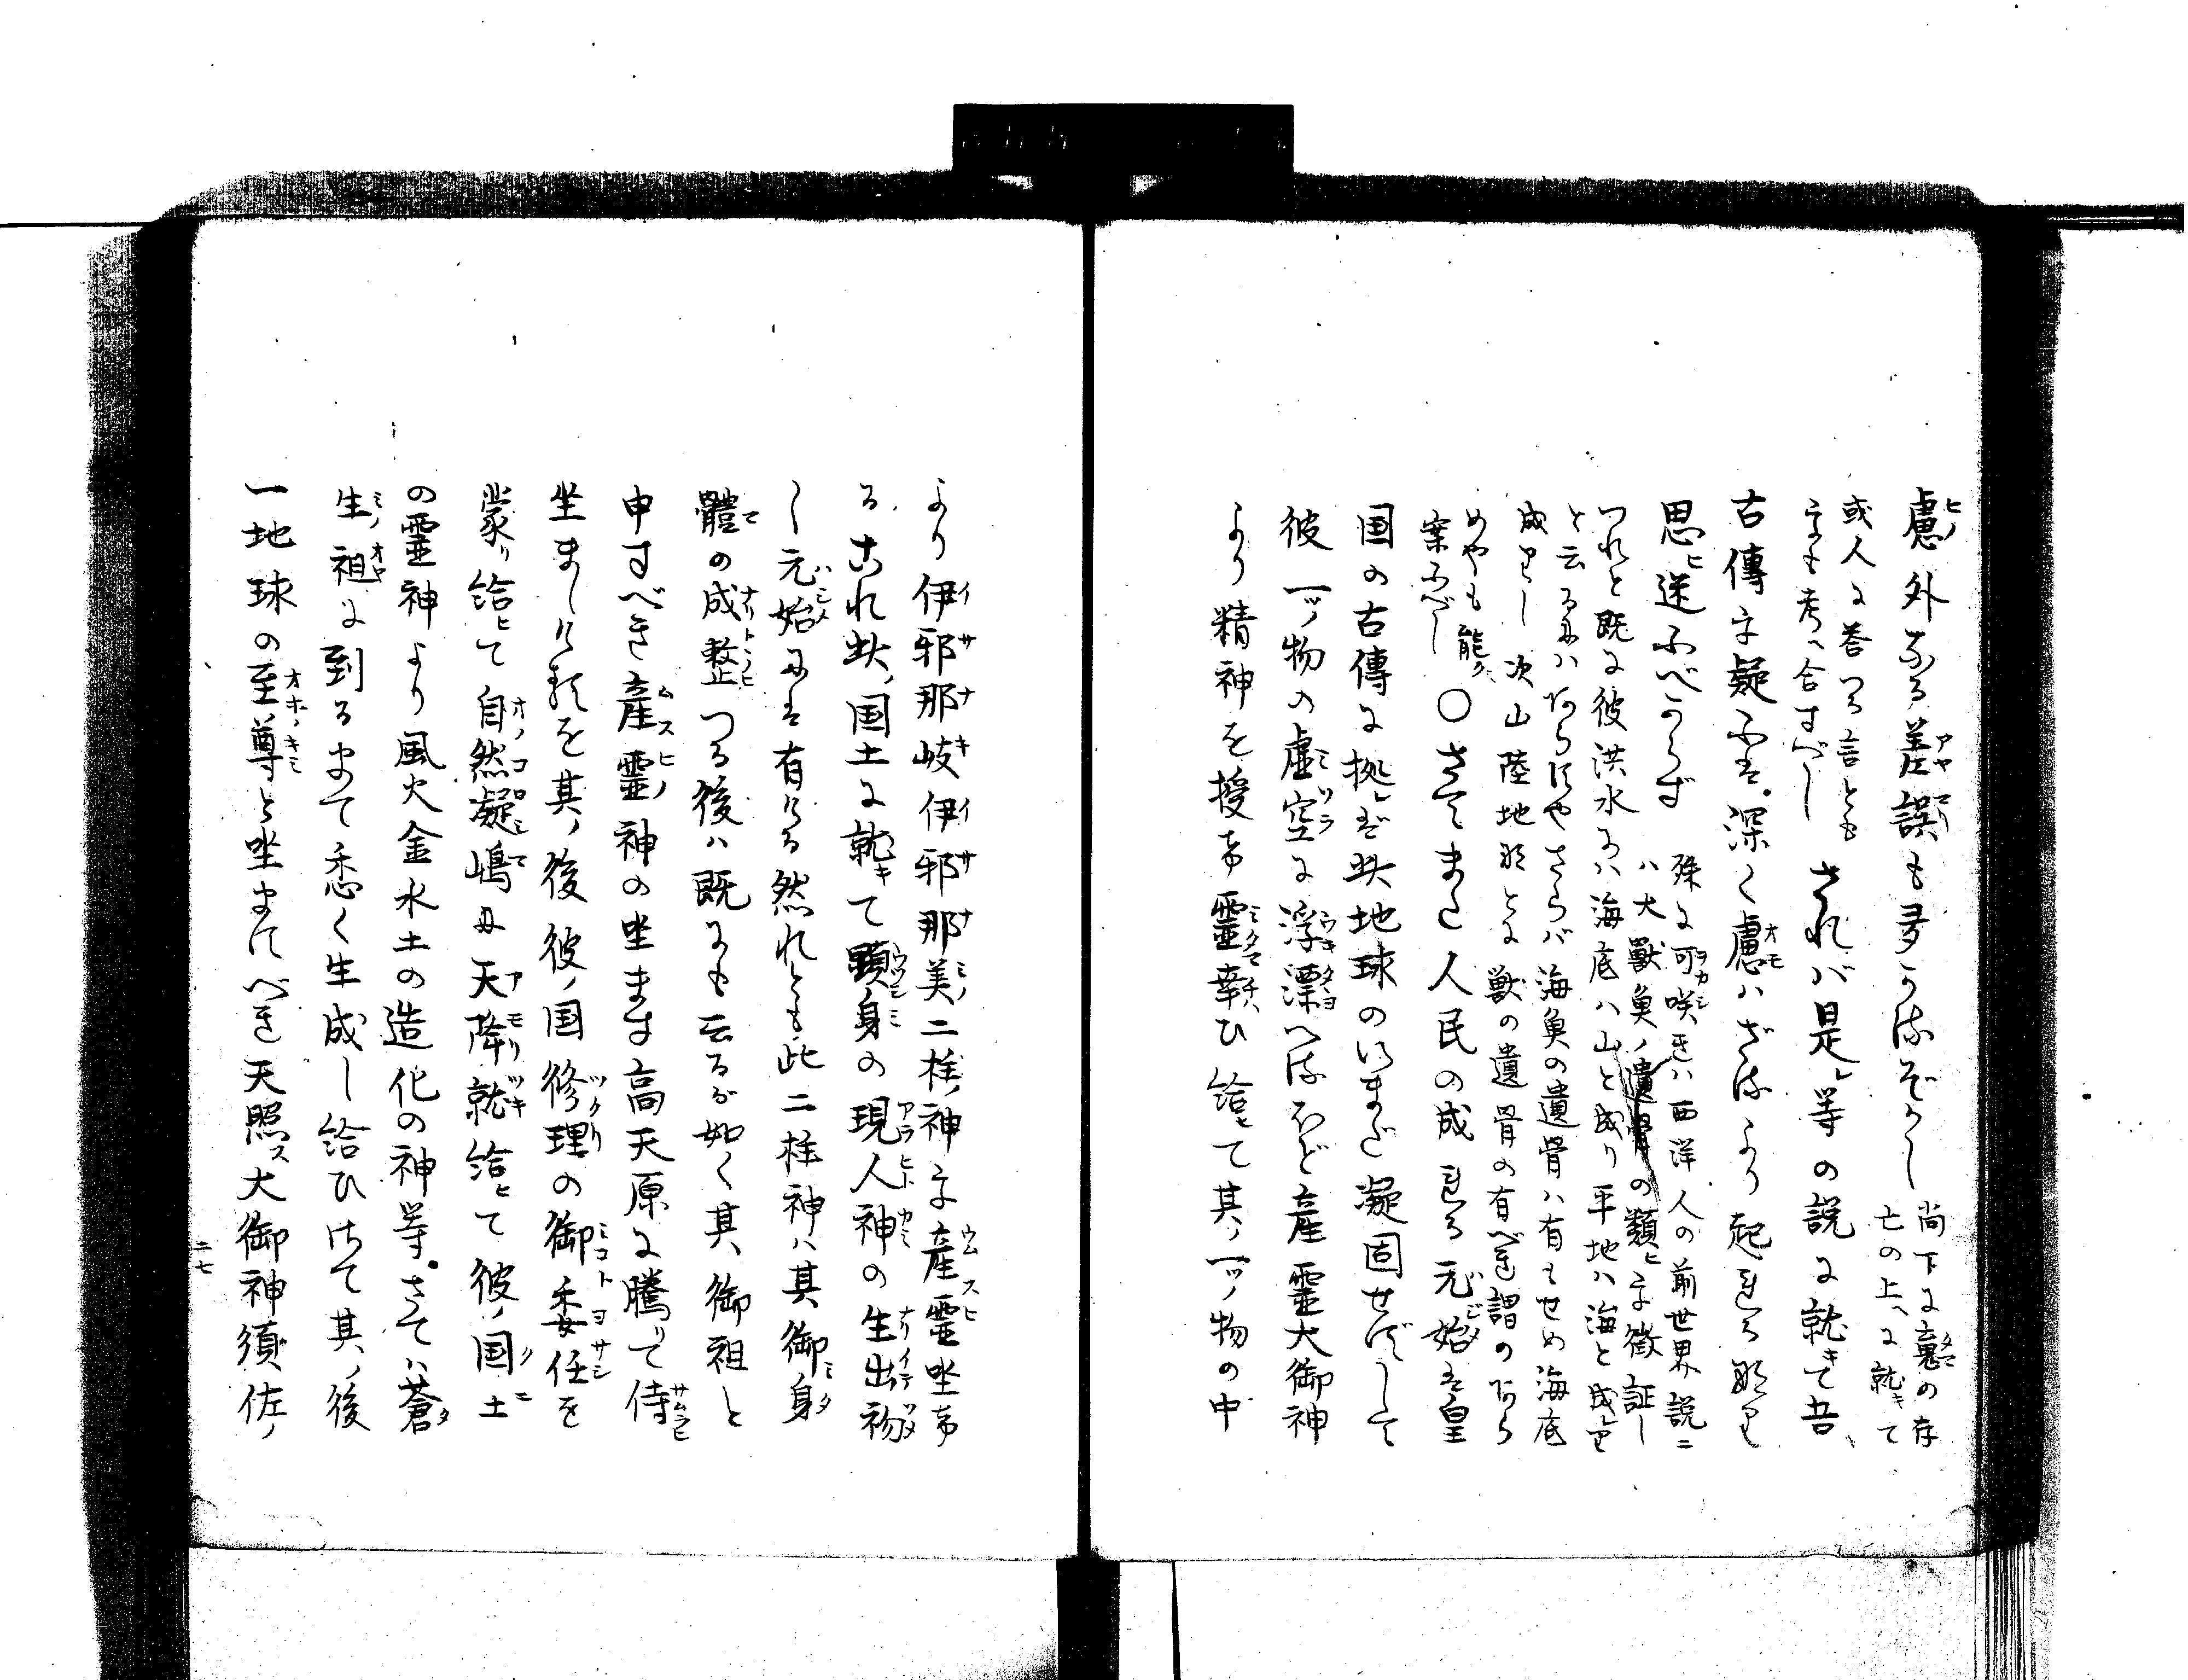 慮外なる差誤も多かるぞかし 尚下に裏の存
亡の上に就て
或人に答つる言とも
をも考へ合すべし されバ是等の説に就きて吾
古傳を疑ふは深く慮ハざるより起れる
思ひ迷ふべからず 殊に可咲きハ西洋人の前世界説ニ
ハ大獣魚ノ遺骨の類ヒを徴証し
つれと既に彼洪水にハ海底ハ山と成り平地ハ海と成
と云るにハあらずやさらバ海魚の遺骨ハ有もせめ海底
成 次山陸地 獣の遺骨の有べき謂のあら
めやも能ク
案ふべし ○さてまた人民の成れる元始は皇
国の古傳に拠レば此地球のいまだ凝固せずして
彼一ツ物の虚空に浮漂へるほど産霊大御神
より精神を授け霊幸ひ給ヒて其ノ一ツ物の中
より伊邪那岐伊邪那美ノ二柱ノ神を産霊坐け
るこれ此ノ国土に就キて顕身の現人神の生出初
し元始には有ける然れとも此二柱神ハ其御身
體の成整つる後ハ既にも云るが如く其御祖と
申すべき産霊ノ神の坐ます高天原に騰りて侍
坐ましけるを其ノ後彼ノ国修理の御委任を
蒙り給ヒて自然凝嶋に天降就給ヒて彼ノ国土
の霊神より風火金水土の造化の神等さてハ蒼
生ノ祖に到るまて悉く生成し給ひけて其ノ後
一地球の至尊と坐ますべき天照ス大御神須佐ノ
二七